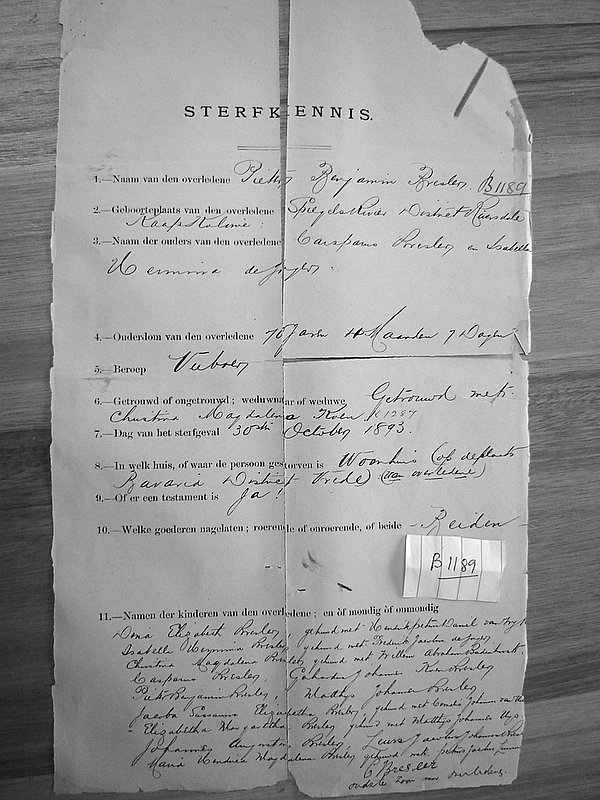 STERFKENNIS.
1.—Naam van den overledene Pieter Benjamin Bresler B1189
2.—Geboorteplaats van den overledene Spiegels Rivier District Riversdale
Kaap Kolonie.
3.—Naam der ouders van den overledene Casparus Bresler en Isabella
Hermina de Jager.
4.—Ouderdom van den overledene 70 Jaren 4 Maanden 7 Dagen
5.—Beroep Veeboer
6.—Getrouwd of ongetrouwd; weduwnaar of weduwe, Getrouwd met
Christina Magdalena Koen K1287
7.—Dag van het sterfgeval 30ste October 1893.
8.—In welk huis, of waar de persoon gestorven is Woonhuis (op de plaats
Bavaria District Vrede) (van overledene)
9.—Of er een testament is Ja!
10.—Welke goederen nagelaten; roerende of onroerende, of beide - Beiden -
B1189
11.—Namen der kinderen van den overledene; en òf mondig òf onmondig
Elizabeth Bresler, gehuwd met Daniel van
Isabella Hermina Bresler, gehuwd met Frederik Jacobus de Jager
Christina Magdalena Bresler, gehuwd met Willem Abraham Badenhorst
Casparus Bresler, Johannes Koen Bresler
Pieter Benjamin Bresler, Matthys Johannes Bresler
Jacoba Susanna Elizabetha Bresler, gehuwd met Johannes van
- Elizabetha Margaretha Bresler gehuwd met Matthys Johannes Uys
Johannes Bresler, Louis Jacobus Johannes
Maria Hendrina Magdalena Bresler gehuwd met Petrus Jacobus
C Bresler
oudste zoon van overledene.